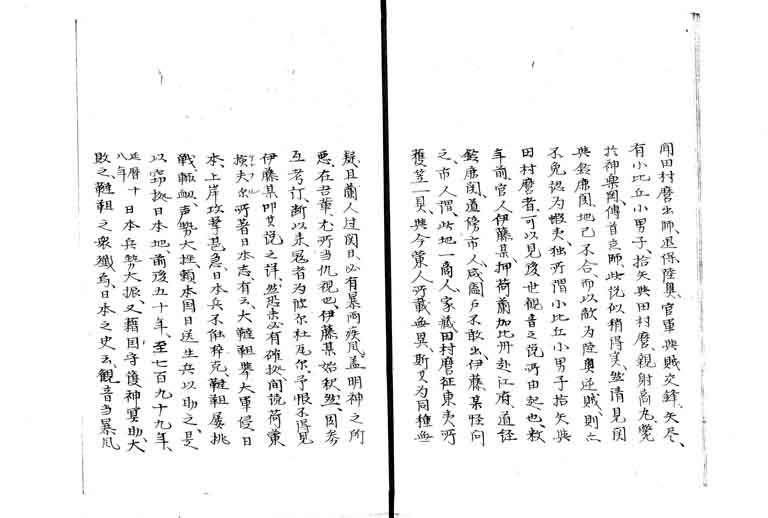 聞田村麿出師、退得陸奥、官軍與賊交鋒、矢尽、
有小比丘小男子、拾矢與田村麿、親射高丸、斃
於神楽岡、傳首京師、此説似稍得美、然清見関
與鈴鹿関、地已不合、而以敵為陸奥逆賊、則亦
不免認為蝦夷、独所謂小比丘小男子拾矢與
田村麿者、可以見後世観音之説所由起也、数
年前、官人伊藤某押荷蘭加比丹赴江府、道経
鈴鹿関、道傍市人、咸闔戸不敢出、伊藤某怪問
之、市人謂、此地一商人、家蔵田村麿征東夷所
獲笠一具、與今蘭人所戴無異、斯其為同種無
疑、且蘭人过関日、必有暴雨疾風、盖明神之所
悪、在吾輩、尤所当仇視也、伊藤某始釈然、因参
互考訂、断以来冦者為欧尔杜瓦尔、予恨不得見
伊藤某叩其説之詳、然恐未必有確拠、間読荷蘭
揆夫尔所著日本志、有云、大韃靼挙大軍侵日
本、上岸攻撃甚急、日本兵不能猝克、韃靼屡挑
戦、輙 声勢大挫、頼本国日送生兵以助之、是
以窃拠日本地、前後五十年、至七百九十九年、
延暦十八年 日本兵勢大振、又藉国守護神冥助、大
敗之、韃靼之衆殲焉、日本之史云、観音当暴風